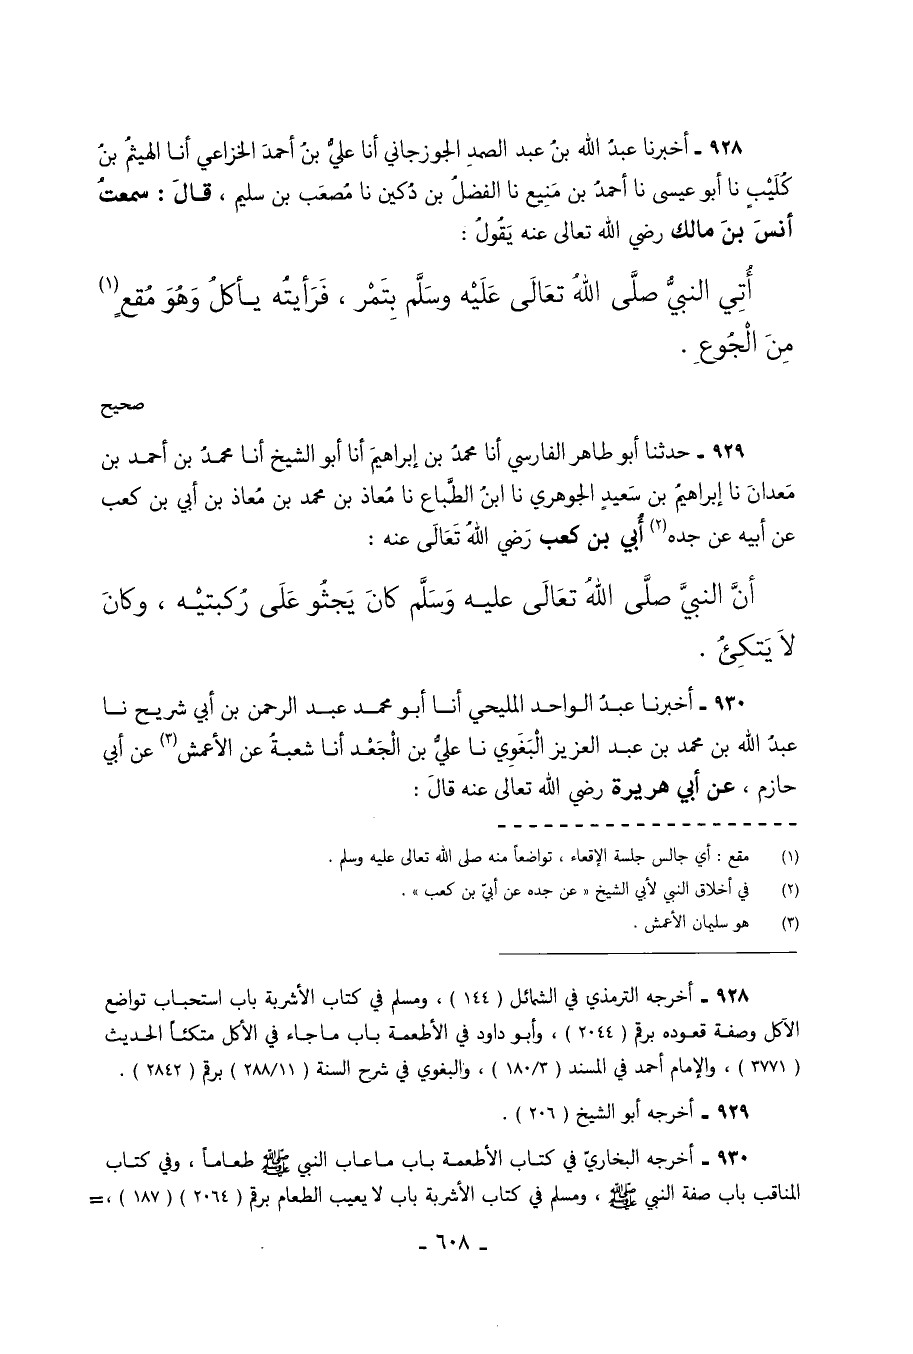 ٩٢٨ ـ أخبرنا عبدُ الله بنُ عبد الصمدِ الجوزجاني أنا عليُّ بنُ أحمدَ الخزاعي أنـا الهيثمُ بنُ
كُلَيْبٍ نا أبو عيسى نا أحمدُ بن مَنِيع نا الفضلُ بن دُكين نا مُصعَب بن سليم ، قـالَ : سمعتُ
أنسَ بنَ مالك رضي الله تعالى عنه يَقُولُ :
أُتِي النبيُّ صلَّى اللهُ تعَالَى عَلَيْه وسَلَّم بِتَمْر ، فَرَأيتُه يـأكلُ وَهُوَ مُقعٍ(١)
مِنَ الْجُوعِ .
صحيح
٩٢٩ ـ حدثنا أبو طاهر الفارسي أنا محمدُ بن إبراهيمَ أنا أبو الشيخ أنـا محمـدُ بن أحمـد بن
مَعدانَ نا إبراهيمُ بن سَعيدٍ الجوهري نا ابنُ الطَّباع نا مُعاذ بن محمد بن مُعاذ بن أبي بن كعب
عن أبيه عن جده(٢) أُبي بن كعب رَضي اللهُ تَعَالَى عنه :
أنَّ النبيَّ صلَّى اللهُ تعَالَى عليـه وَسَلَّم كانَ يَجثُو عَلَى رُكبتيْـه ، وكانَ
لاَ يَتكِئُ .
٩٣٠ ـ أخبرنـا عبـدُ الـواحـد المليحي أنـا أبـو محمـد عبـد الرحمن بن أبي شريـح نـا
عبدُ الله بن محمد بن عبـد العزيز الْبَغَوِي نـا عليُّ بن الْجَعْـد أنـا شعبـةُ عن الأعمش(٣) عن أبي
حازم ، عن أبي هريرة رضي الله تعالى عنه قالَ :
(١) مقع : أي جالس جلسة الإقعاء ، تواضعاً منه صلى الله تعالى عليه وسلم .
(٢) في أخلاق النبي لأبي الشيخ « عن جده عن أبيّ بن كعب » .
(٣) هو سليمان الأعمش .
٩٢٨ ـ أخرجه الترمذي في الشمائل ( ١٤٤ ) ، ومسلم في كتاب الأشربة باب استحبـاب تواضع
الآكل وصفـة قعـوده برقم ( ٢٠٤٤ ) ، وأبـو داود في الأطعمـة بـاب مـاجـاء في الأكل متكئـاً الحـديث
( ٣٧٧١ ) ، والإمام أحمد في المسند ( ١٨٠/٣ ) ، والبغوي في شرح السنة ( ٢٨٨/١١ ) برقم ( ٢٨٤٢ ) .
٩٢٩ ـ أخرجه أبو الشيخ ( ٢٠٦ ) .
٩٣٠ ـ أخرجه البخاريّ في كتـاب الأطعمـة بـاب مـاعـاب النبي ﷺ طعـامـاً ، وفي كتـاب
المناقب باب صفة النبي ﷺ ، ومسلم في كتاب الأشربة باب لا يعيب الطعام برقم ( ٢٠٦٤ ) ( ١٨٧ ) ،=
ـ ٦٠٨ ـ